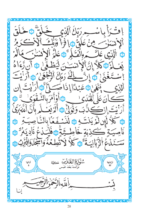 اقْرَأْ بِاسْمِ رَبِّكَ الَّذِي خَلَقَ ۝ خَلَقَ
الْإِنسَانَ مِنْ عَلَقٍ ۝ اقْرَأْ وَرَبُّكَ الْأَكْرَمُ
۝ الَّذِي عَلَّمَ بِالْقَلَمِ ۝ عَلَّمَ الْإِنسَانَ مَا لَمْ
يَعْلَمْ ۝ كَلَّا إِنَّ الْإِنسَانَ لَيَطْغَىٰ ۝ أَن رَّآهُ
اسْتَغْنَىٰ ۝ إِنَّ إِلَىٰ رَبِّكَ الرُّجْعَىٰ ۝ أَرَأَيْتَ
الَّذِي يَنْهَىٰ ۝ عَبْدًا إِذَا صَلَّىٰ ۝ أَرَأَيْتَ إِن
كَانَ عَلَى الْهُدَىٰ ۝ أَوْ أَمَرَ بِالتَّقْوَىٰ ۝
أَرَأَيْتَ إِن كَذَّبَ وَتَوَلَّىٰ ۝ أَلَمْ يَعْلَم بِأَنَّ اللَّهَ يَرَىٰ ۝
كَلَّا لَئِن لَّمْ يَنتَهِ لَنَسْفَعًا بِالنَّاصِيَةِ ۝
نَاصِيَةٍ كَاذِبَةٍ خَاطِئَةٍ ۝ فَلْيَدْعُ نَادِيَهُ ۝
سَنَدْعُ الزَّبَانِيَةَ ۝ كَلَّا لَا تُطِعْهُ وَاسْجُدْ وَاقْتَرِب ۝
سُورَةُ الْقَدْرِ
بِسْمِ اللَّهِ الرَّحْمَٰنِ الرَّحِيمِ